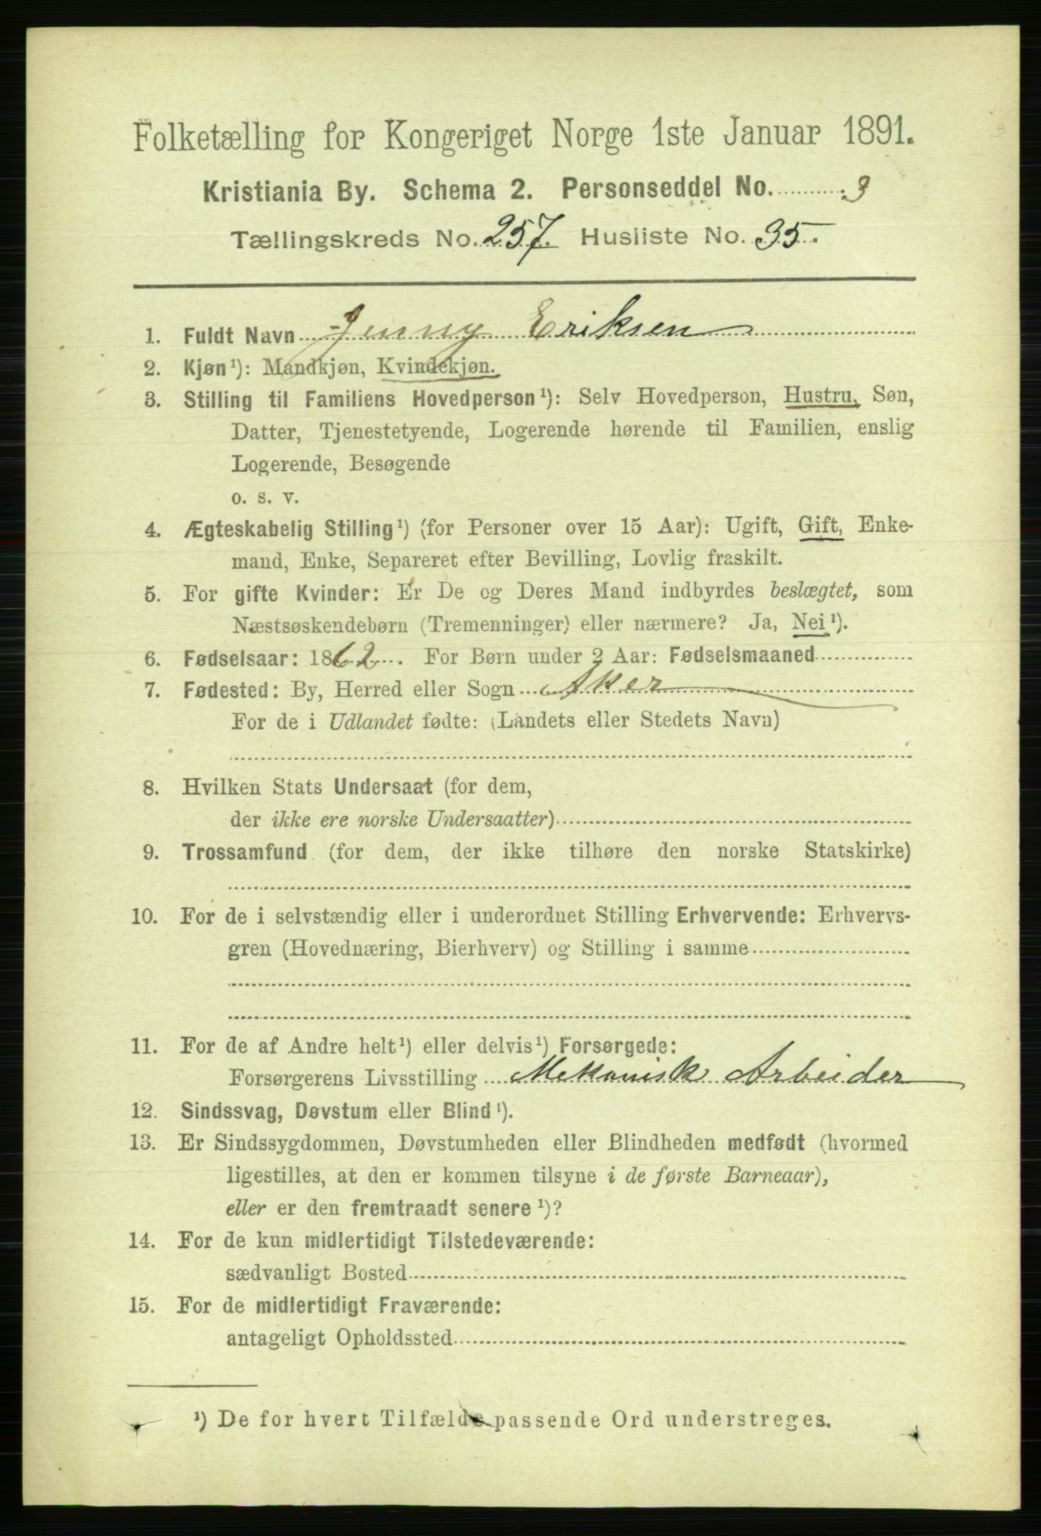 Folketælling for Kongeriget Norge 1ste Januar 1891.
Kristiania By. Schema 2. Personseddel No. 3
Tællingskreds No. 257. Husliste No. 35.
1. Fuldt Navn Jenny Eriksen
2. Kjøn¹): Mandkjøn, Kvindekjøn.
3. Stilling til Familiens Hovedperson¹): Selv Hovedperson, Hustru, Søn,
Datter, Tjenestetyende, Logerende hørende til Familien, enslig
Logerende, Besøgende
o. s. v.
4. Ægteskabelig Stilling¹) (for Personer over 15 Aar): Ugift, Gift, Enke-
mand, Enke, Separeret efter Bevilling, Lovlig fraskilt.
5. For gifte Kvinder: Er De og Deres Mand indbyrdes beslægtet, som
Næstsøskendebørn (Tremenninger) eller nærmere? Ja, Nei¹).
6. Fødselsaar: 1862. For Børn under 2 Aar: Fødselsmaaned
7. Fødested: By, Herred eller Sogn Aker
For de i Udlandet fødte: (Landets eller Stedets Navn)
8. Hvilken Stats Undersaat (for dem,
der ikke ere norske Undersaatter)
9. Trossamfund (for dem, der ikke tilhøre den norske Statskirke)
10. For de i selvstændig eller i underordnet Stilling Erhvervende: Erhvervs-
gren (Hovednæring, Bierhverv) og Stilling i samme
11. For de af Andre helt¹) eller delvis¹) Forsørgede:
Forsørgerens Livsstilling Mekanisk Arbeider
12. Sindssvag, Døvstum eller Blind¹).
13. Er Sindssygdommen, Døvstumheden eller Blindheden medfødt (hvormed
ligestilles, at den er kommen tilsyne i de første Barneaar),
eller er den fremtraadt senere¹)?
14. For de kun midlertidigt Tilstedeværende:
sædvanligt Bosted
15. For de midlertidigt Fraværende:
antageligt Opholdssted
¹) De for hvert Tilfælde passende Ord understreges.